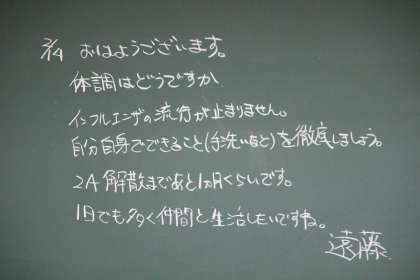 2/4 おはようございます。
体調はどうですか
インフルエンザの流行が止まりません。
自分自身でできること(手洗いなど)を徹底しましょう。
2A 解散まであと1カ月くらいです。
1日でも多く仲間と生活したいですね。
遠藤